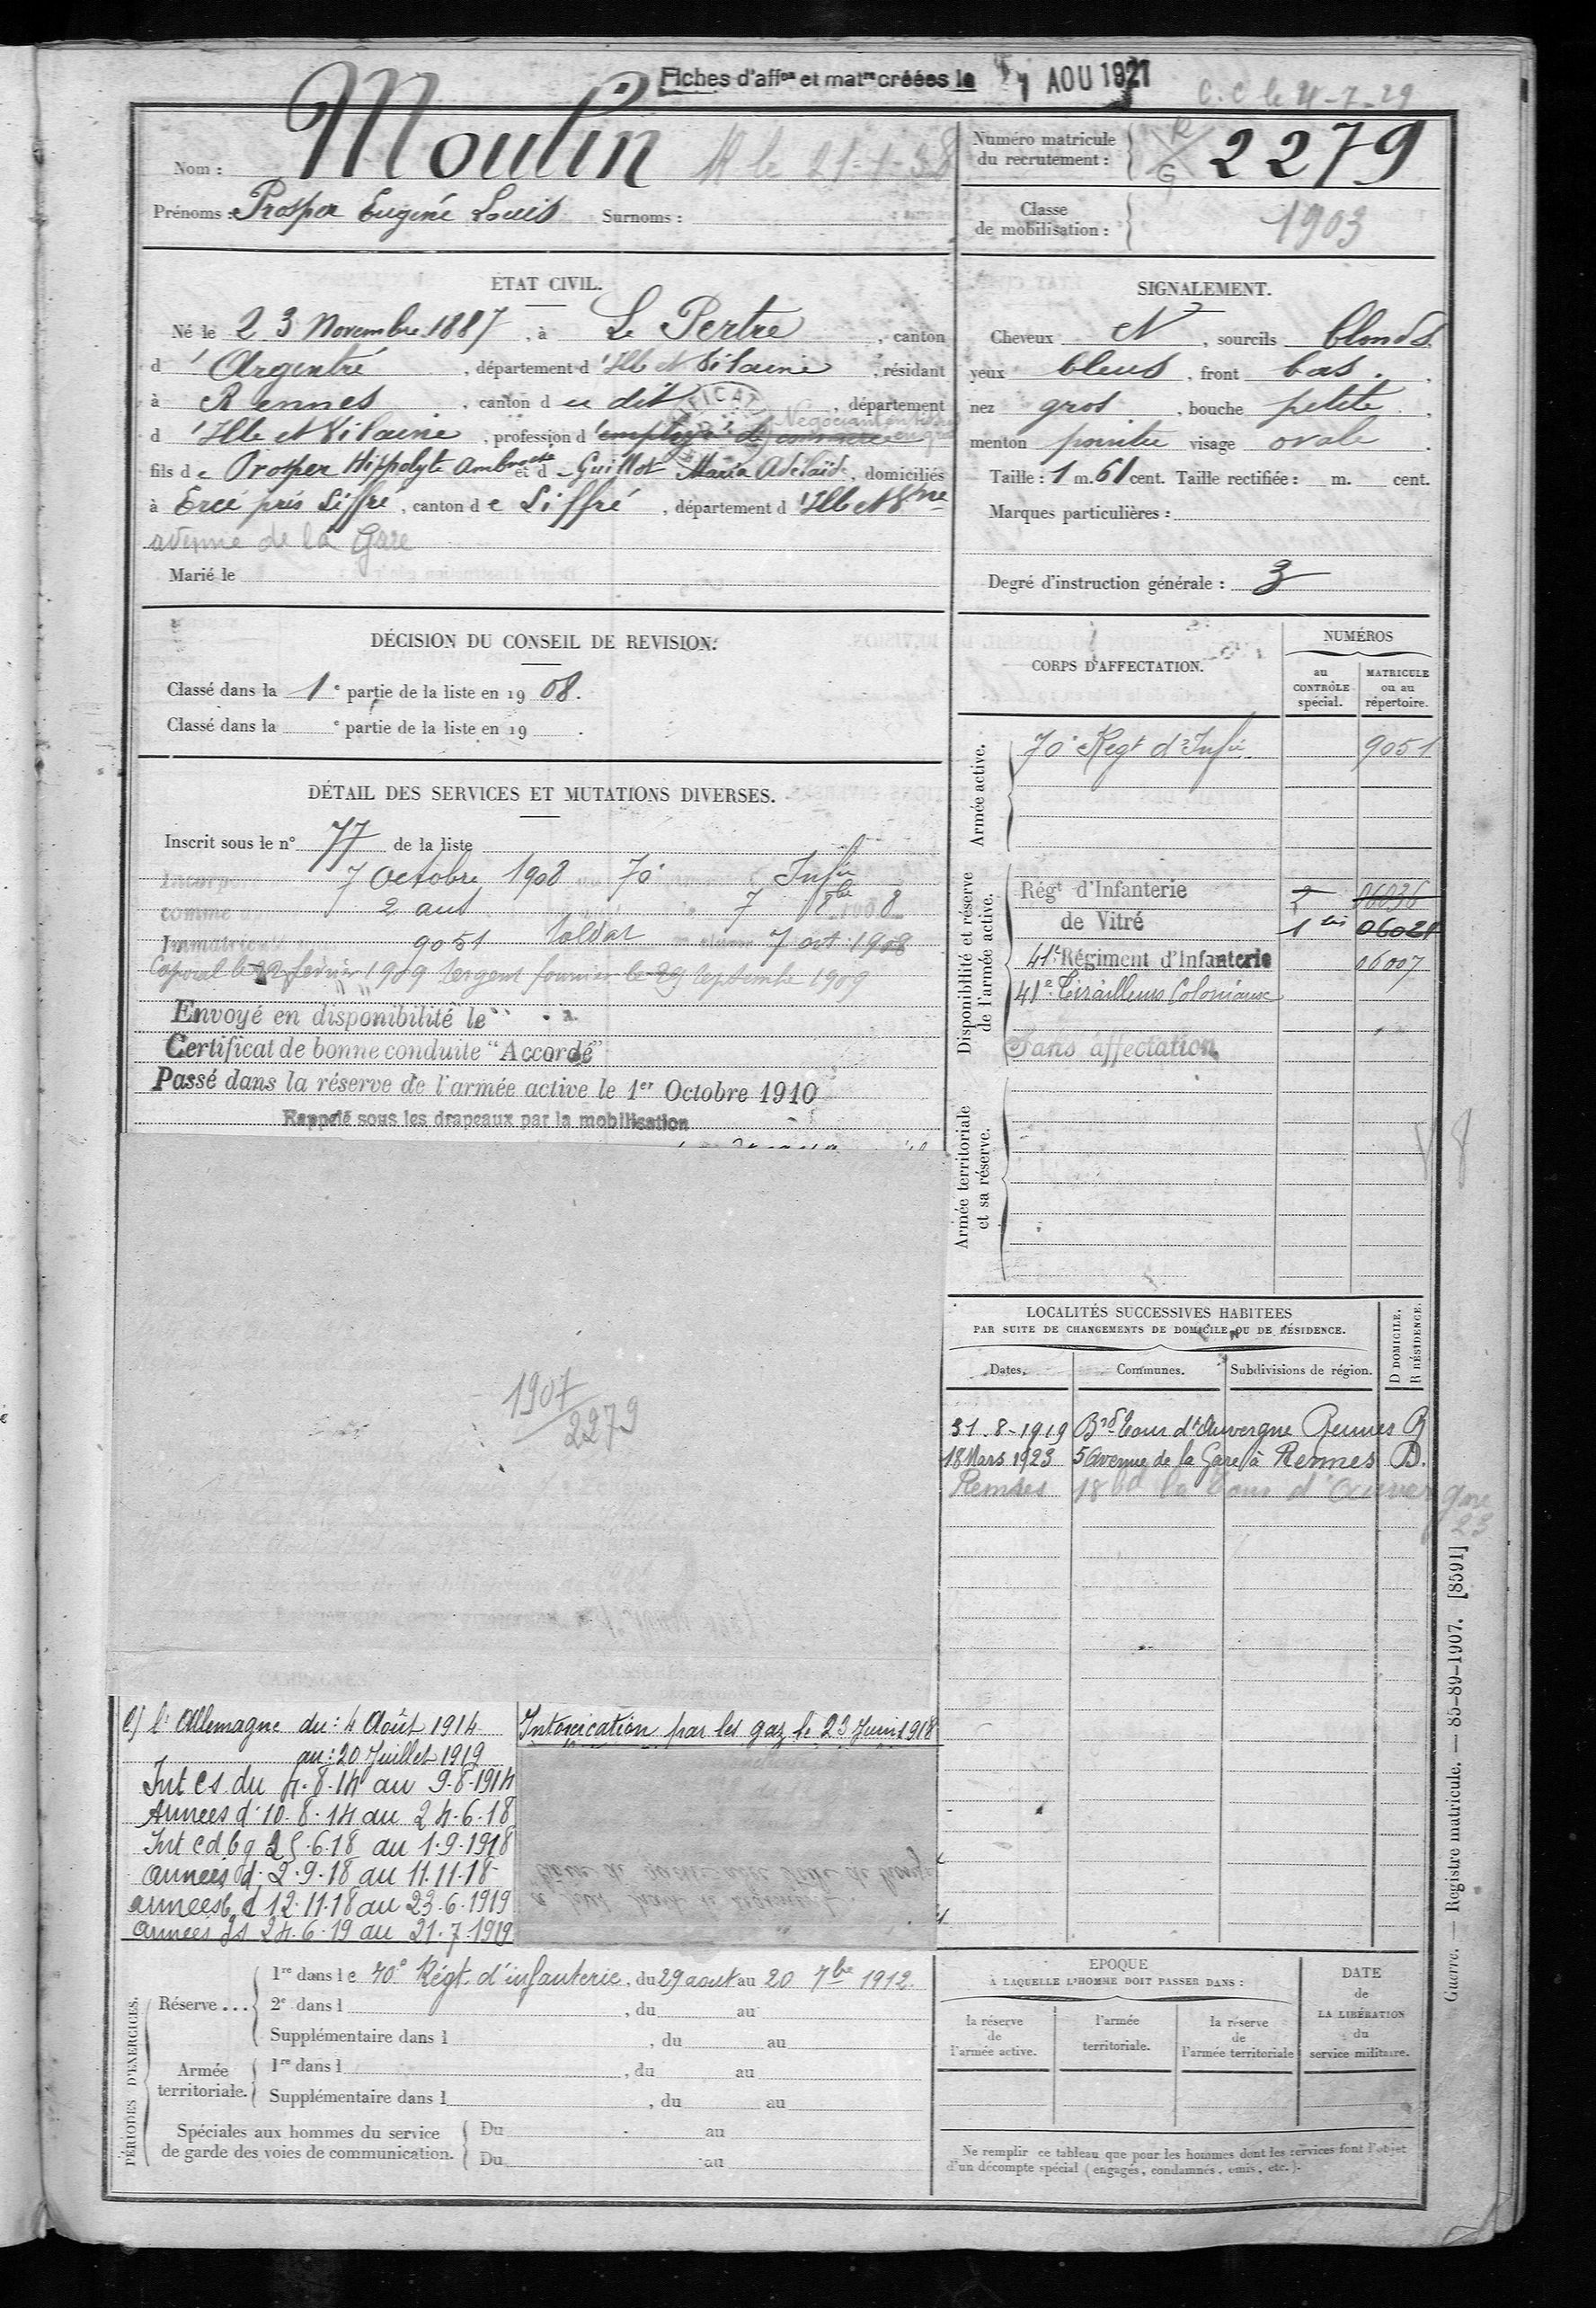 Fiches d'affon et matre créées le 1 AOU 1921
C.C le 4-7-29
Nom : Moulin
R le 21-1-38
Prénoms : Prosper Eugène Louis Surnoms :
Numéro matricule du recrutement : R G 2279
Classe de mobilisation : 1903
ETAT CIVIL.
Né le 23 Novembre 1887, à Le Pertre, canton
d'Argentré, département d'Ille et Vilaine, résidant
à Rennes, canton d u dit, département
d'Ille et Vilaine, profession d'employé de commerce
Négociant en
fils de Prosper Hippolyte Ambroise et de Guillot Maria Adélaïde, domiciliés
à Ercé près Liffré, canton de Liffré, département d'Ille et Vne
avenue de la Gare
Marié le
SIGNALEMENT.
Cheveux N, sourcils blonds
yeux bleus, front bas.
nez gros, bouche petite
menton pointu visage ovale
Taille : 1 m. 61 cent. Taille rectifiée : m. cent.
Marques particulières :
Degré d'instruction générale : 3
DÉCISION DU CONSEIL DE REVISION.
Classé dans la 1e partie de la liste en 1908.
Classé dans la e partie de la liste en 19 .
DÉTAIL DES SERVICES ET MUTATIONS DIVERSES.
Inscrit sous le n° 77 de la liste
Incorporé 7 Octobre 1908 70e Infie
comme 2 ans 7 8bre 8
Immatriculé 9051 soldat 7 oct 1908
Caporal le février 1909 Sergent fourrier le 29 Septembre 1909
Envoyé en disponibilité le
Certificat de bonne conduite "Accordé"
Passé dans la réserve de l'armée active le 1er Octobre 1910
Rappelé sous les drapeaux par la mobilisation
1907
2279
CORPS D'AFFECTATION.
NUMÉROS
au CONTRÔLE spécial.
MATRICULE ou au répertoire.
Armée active.
70e Regt d'Infie 9051
Disponibilité et réserve de l'armée active.
Régt d'Infanterie 2 06036
de Vitré 1 bis 06021
41e Régiment d'Infanterie 06007
41e Tirailleurs Coloniaux
Sans affectation
Armée territoriale et sa réserve.
LOCALITÉS SUCCESSIVES HABITEES
PAR SUITE DE CHANGEMENTS DE DOMICILE OU DE RÉSIDENCE.
Dates. Communes. Subdivisions de région. D DOMICILE. R RÉSIDENCE.
31.8-1919 Bd Tour d'Auvergne Rennes R
18 Mars 1923 5 Avenue de la Gare à Rennes D.
Rennes 18 Bd la Tour d'Auvergne
23
C) l'Allemagne du : 4 Août 1914
au : 20 Juillet 1919
Int CS du 4.8.14 au 9-8-1914
Armées d 10.8.14 au 24.6.18
Int cdbg 25.6.18 au 1.9.1918
Armées d. 2.9.18 au 11.11.18
armées d 12.11.18 au 23.6.1919
Armées 24.6.19 au 21.7.1919
Intoxication par les gaz le 23 Juin 1918
PÉRIODES D'EXERCICES.
Réserve ...
1re dans le 70e Régt. d'infanterie, du 29 aout au 20 7bre 1912.
2e dans l , du au
Supplémentaire dans l , du au
Armée territoriale.
1re dans l , du au
Supplémentaire dans l , du au
Spéciales aux hommes du service
de garde des voies de communication.
Du au
Du au
EPOQUE
A LAQUELLE L'HOMME DOIT PASSER DANS :
la réserve de l'armée active.
l'armée territoriale.
la réserve de l'armée territoriale
DATE de LA LIBÉRATION du service militaire.
Ne remplir ce tableau que pour les hommes dont les services font l'objet
d'un décompte spécial (engagés, condamnés, omis, etc.).
Guerre. — Registre matricule. — 85-89-1907. [8591]